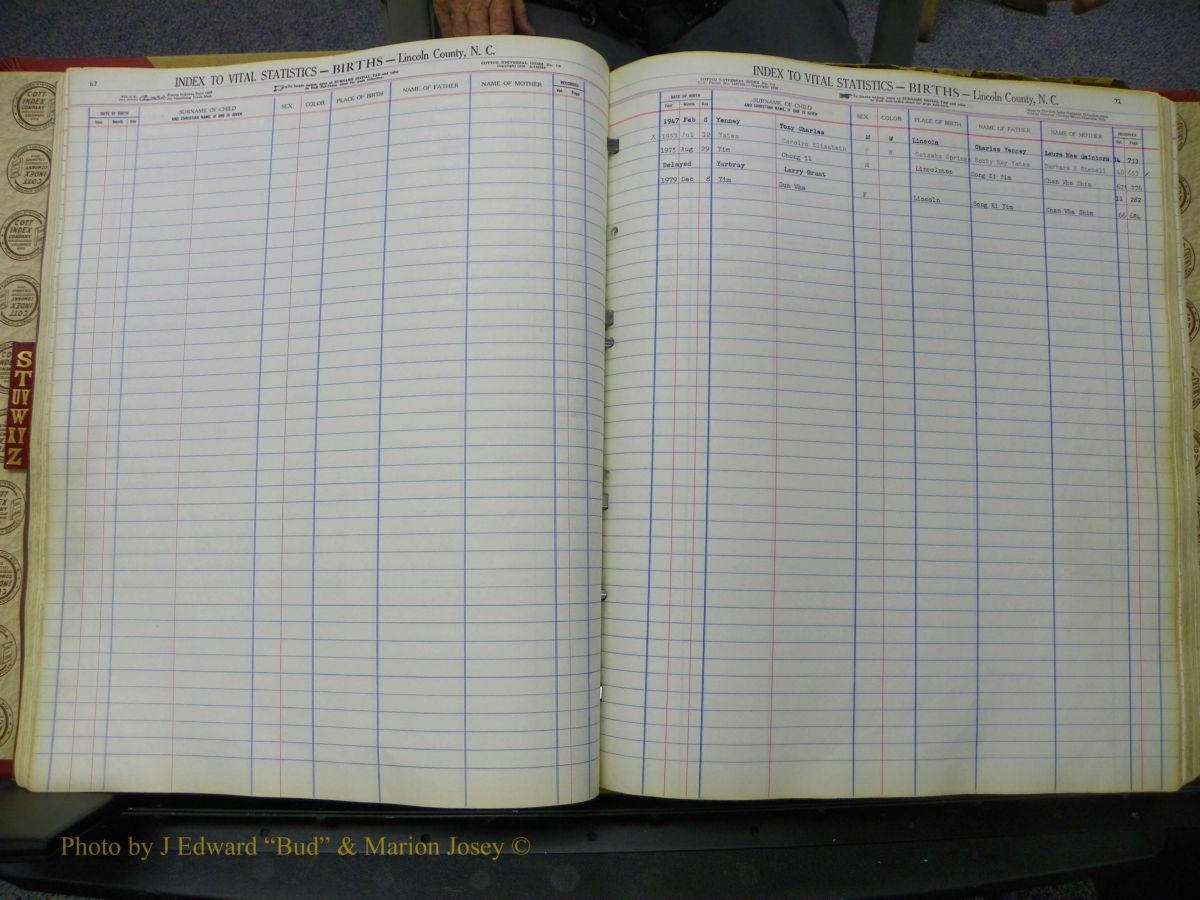 67
INDEX TO VITAL STATISTICS — BIRTHS — Lincoln County, N. C.
DATE OF BIRTH
Year Month Day
SURNAME OF CHILD
AND CHRISTIAN NAME, IF ONE IS GIVEN
SEX
COLOR
PLACE OF BIRTH
NAME OF FATHER
NAME OF MOTHER
RECORDED
Vol. Page
INDEX TO VITAL STATISTICS — BIRTHS — Lincoln County, N. C.
71
DATE OF BIRTH
Year Month Day
SURNAME OF CHILD
AND CHRISTIAN NAME, IF ONE IS GIVEN
SEX
COLOR
PLACE OF BIRTH
NAME OF FATHER
NAME OF MOTHER
RECORDED
Vol. Page
1947 Feb 8 Yenney Tony Charles M W Lincoln Charles Yenney Laura Mae 34 733
X 1953 Jul 12 Yates Carolyn Elizabeth F W Catawba Springs Bobby Ray Yates 40 653
1975 Aug 29 Yim Chong Il M Lincolnton Song Ki Yim Chan Wha Shin 62 776
Delayed Yarbray Larry Grant 11 282
1979 Dec 8 Yim Sun Wha F Lincoln Song Ki Yim Chan Wha Shin 66 684
COTT
INDEX
COMPANY
S
T
UV
W
XY
Z
Photo by J Edward “Bud” & Marion Josey ©